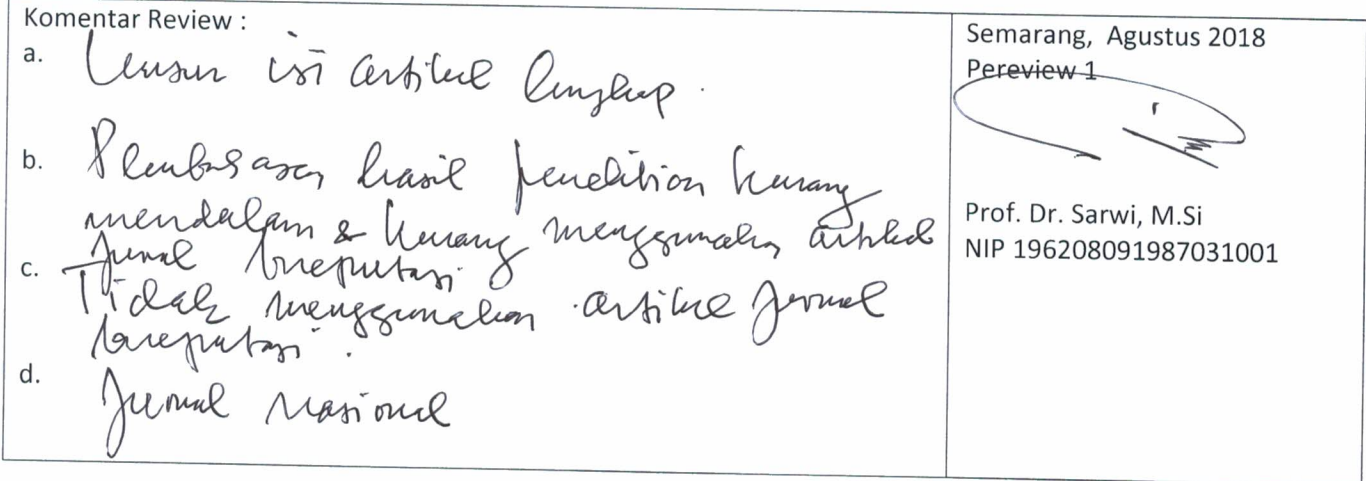 Komentar Review :
a. Unsur isi artikel lengkap.
b. Pembahasan hasil penelitian kurang
mendalam & kurang menggunakan artikel
jurnal bereputasi
c. Tidak menggunakan artikel jurnal
bereputasi.
d. Jurnal Nasional
Semarang, Agustus 2018
Pereview 1
Prof. Dr. Sarwi, M.Si
NIP 196208091987031001